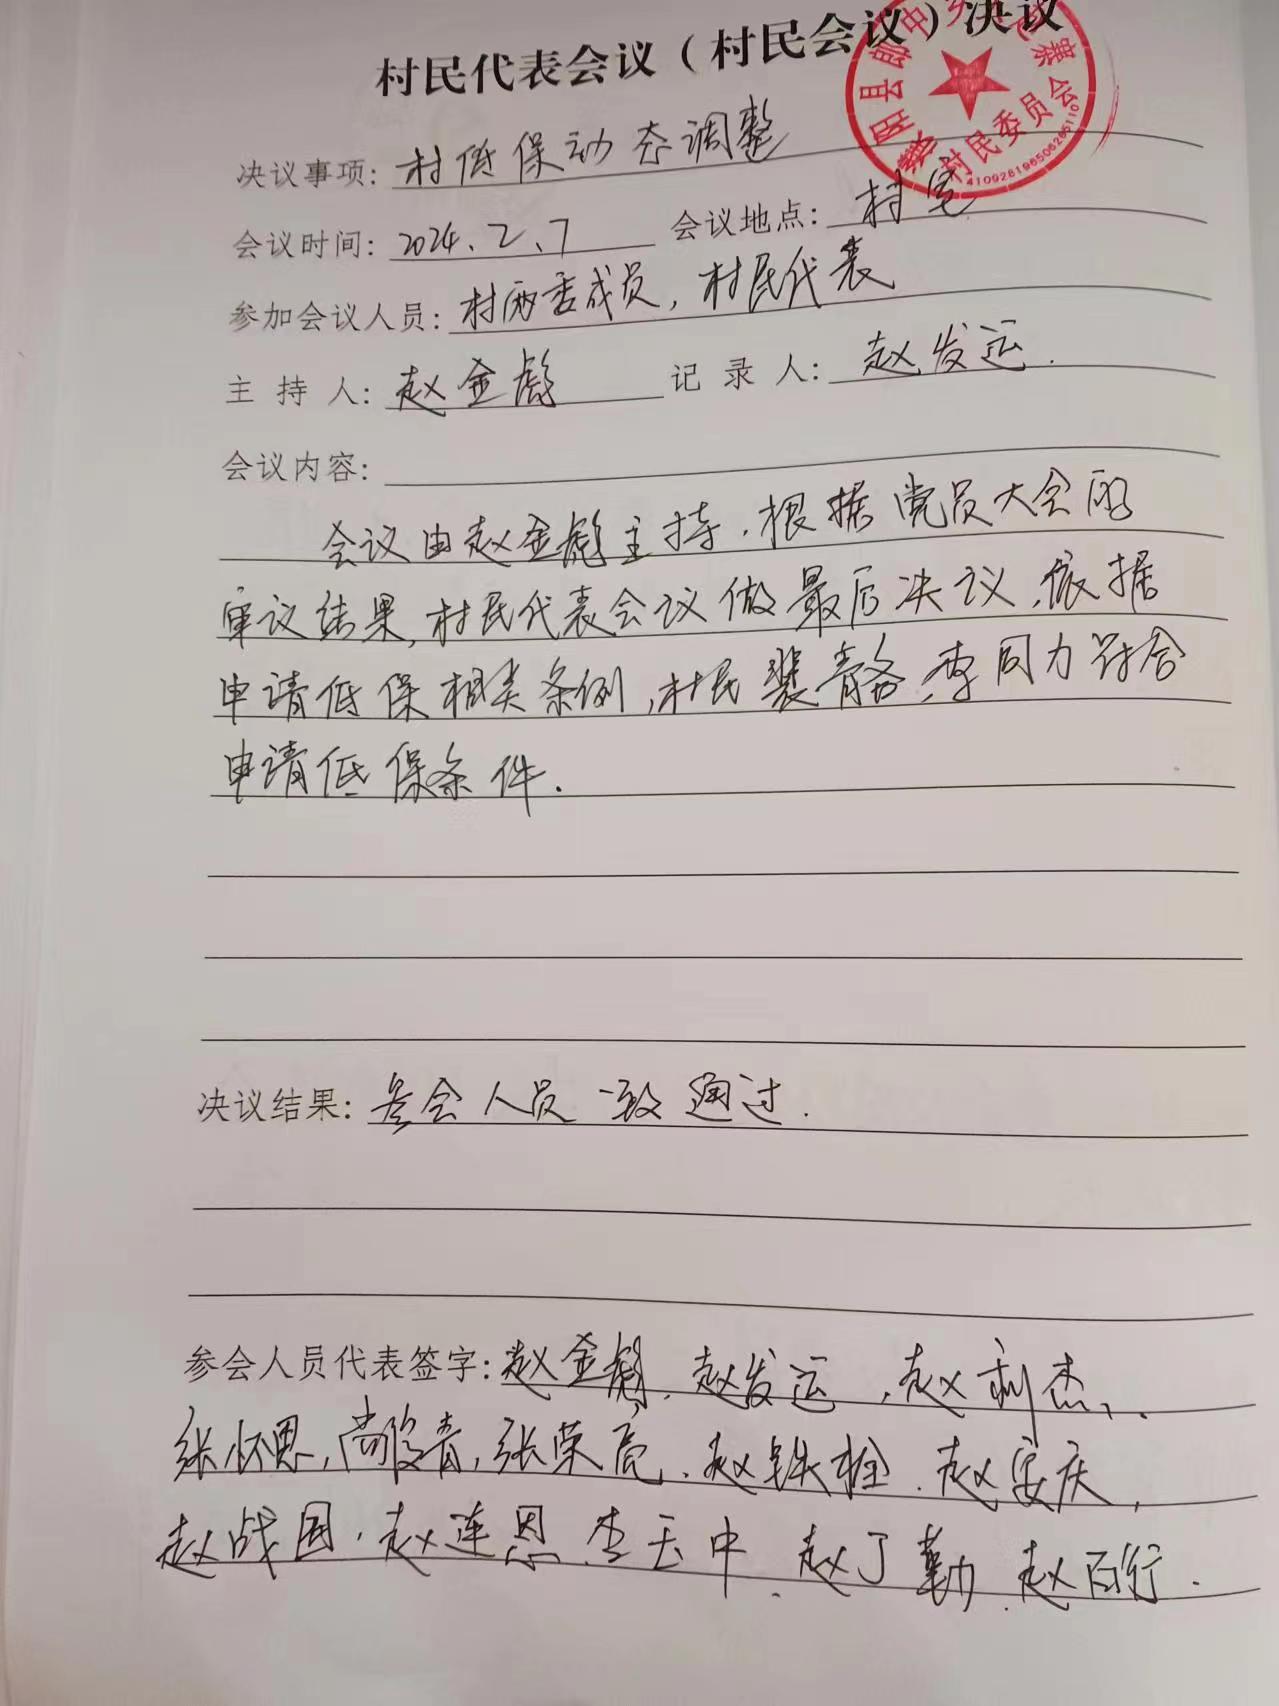 村民代表会议（村民会议）决议
决议事项：村低保动态调整
会议时间：2024.2.7 会议地点：村室
参加会议人员：村两委成员，村民代表
主持人：赵金彪 记录人：赵发运.
会议内容：
会议由赵金彪主持.根据党员大会的
审议结果,村民代表会议做最后决议.依据
申请低保相关条例,村民裴青多、李同力符合
申请低保条件.
决议结果：参会人员一致通过.
参会人员代表签字：赵金彪、赵发运,赵利杰、
张怀恩,尚俊青,张荣亮、赵铁栓、赵安庆,
赵战国.赵连恩、李玉中、赵丁勤、赵百行.
濮阳县郎中乡 寨
村民委员会